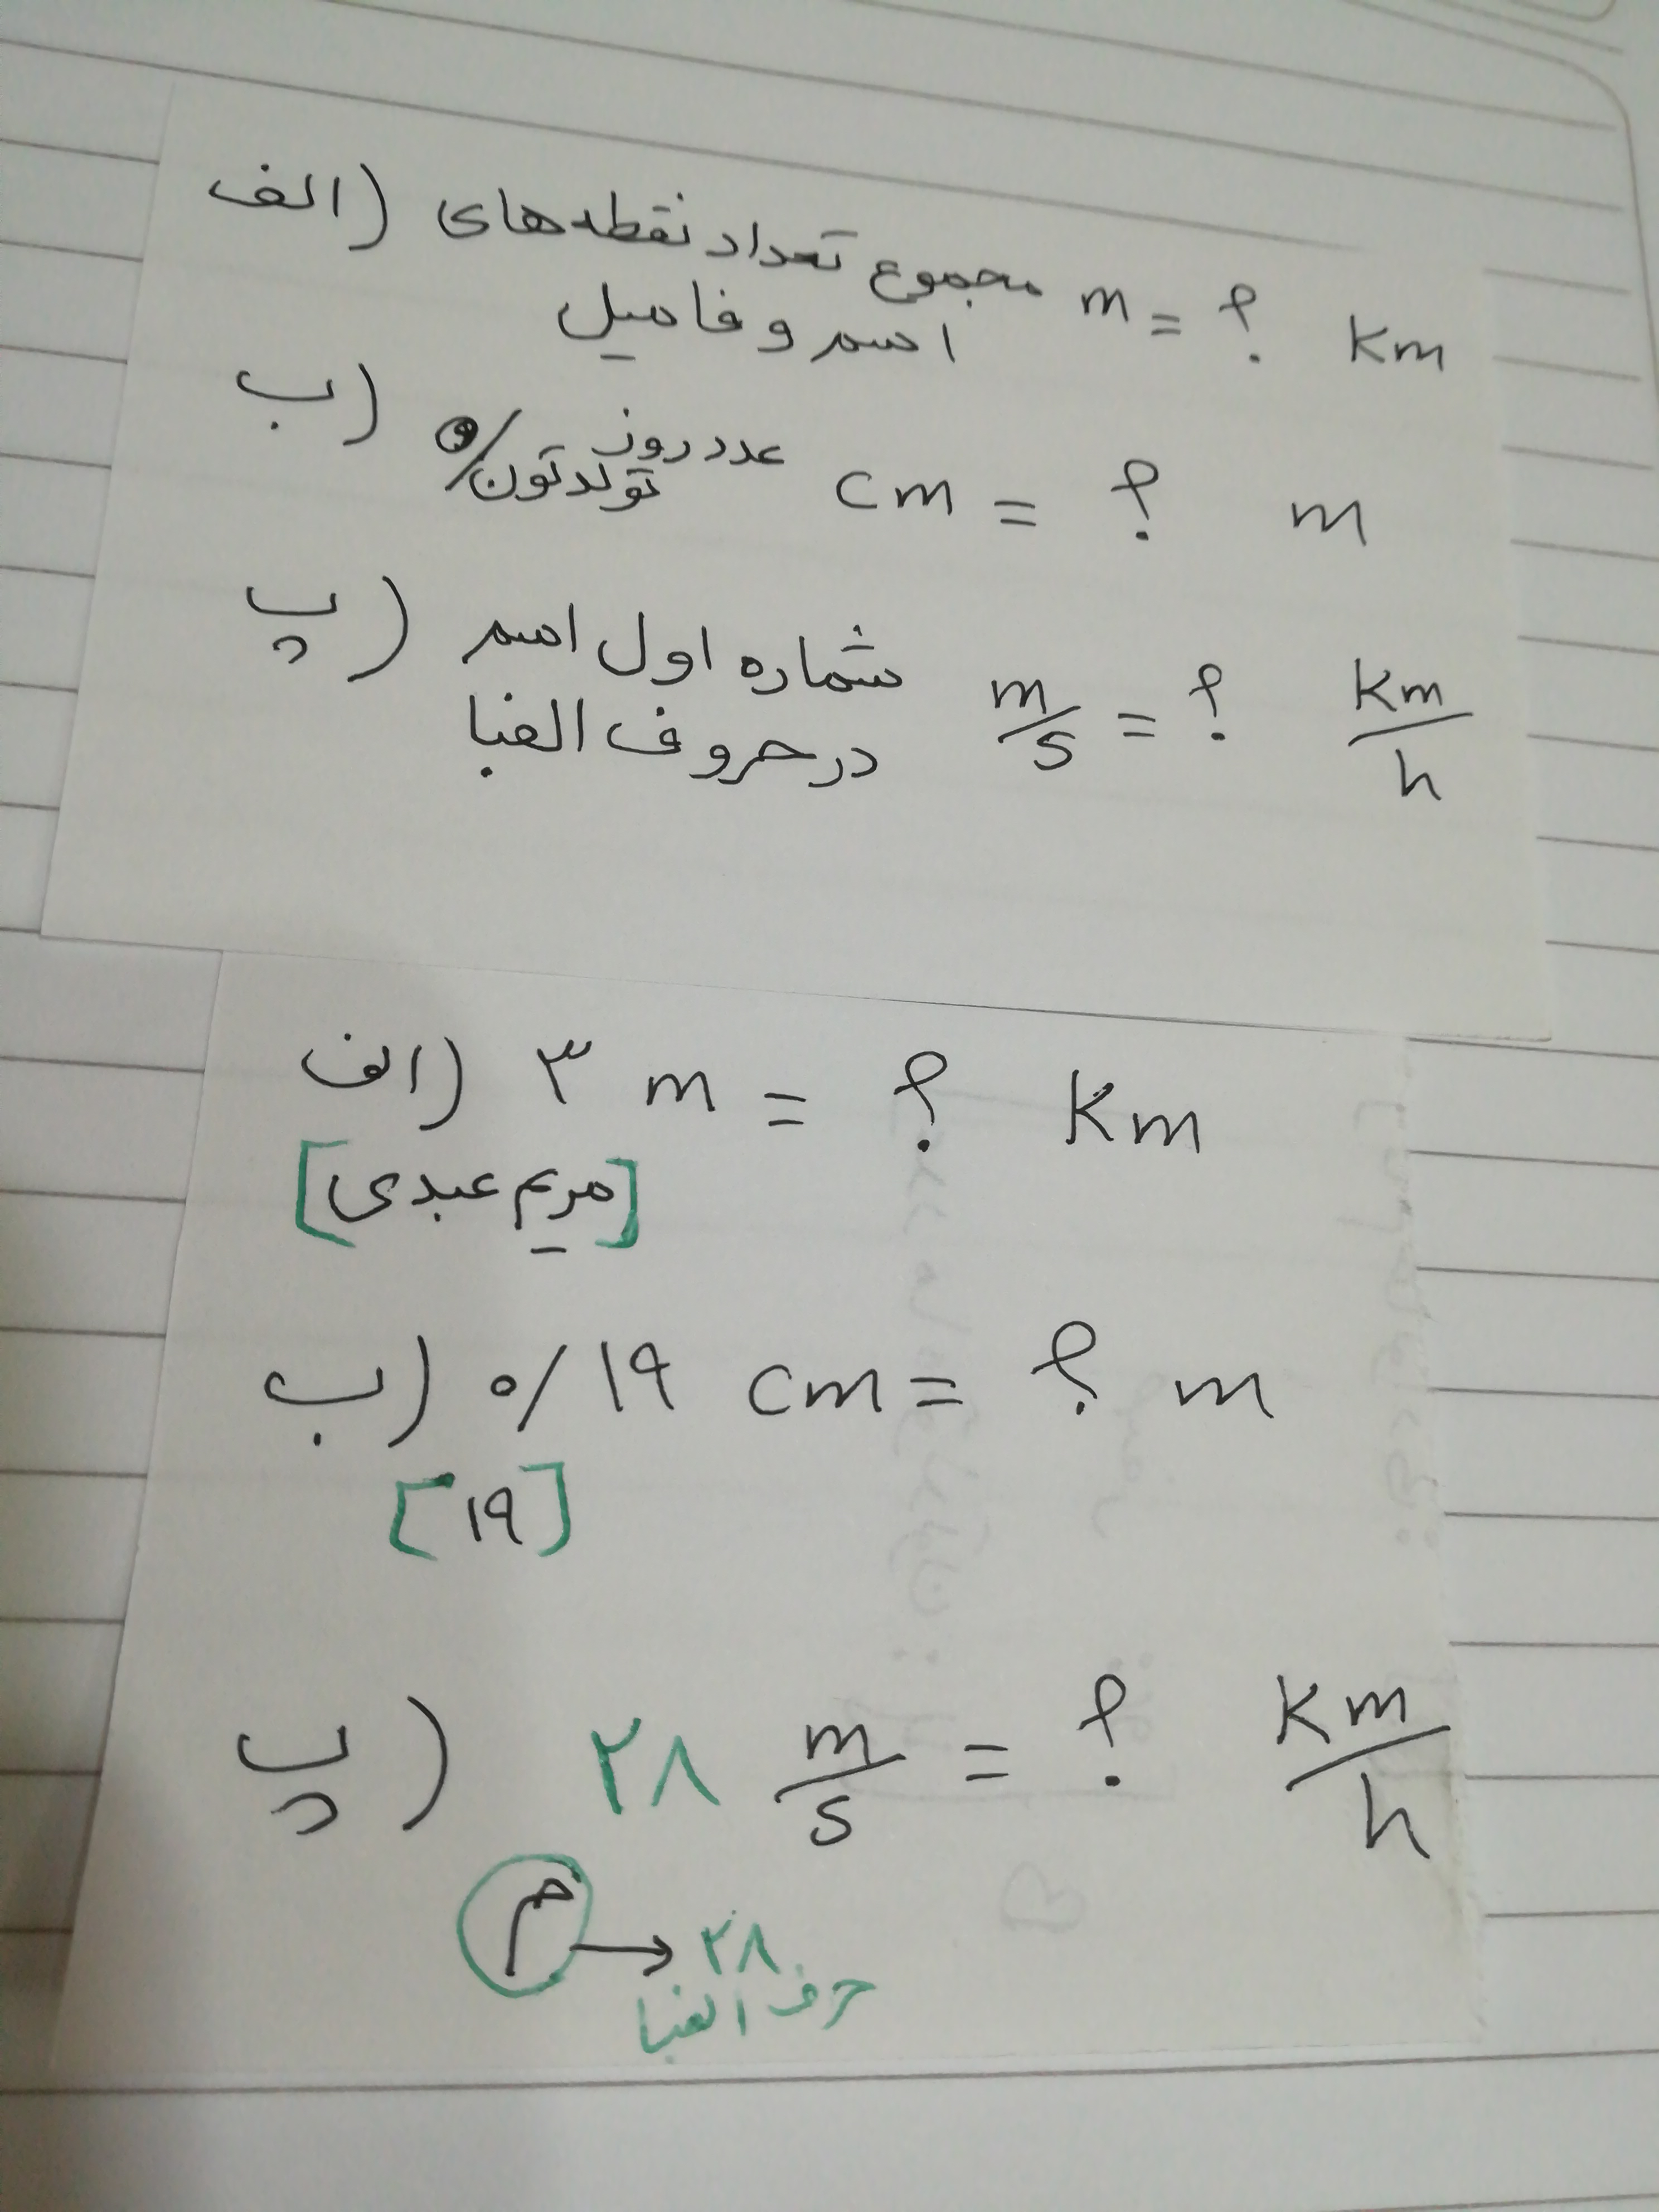 الف) مجموع تعداد نقطه های m = ? km
اسم و فامیل
ب) ۰/عدد روز تولدتون cm = ? m
پ) شماره اول اسم در حروف الفبا m/s = ? km/h
الف) ۳ m = ? km
[مریم عبدی]
ب) ۰/۱۹ cm = ? m
[۱۹]
پ) ۲۸ m/s = ? km/h
م → ۲۸
حرف الفبا